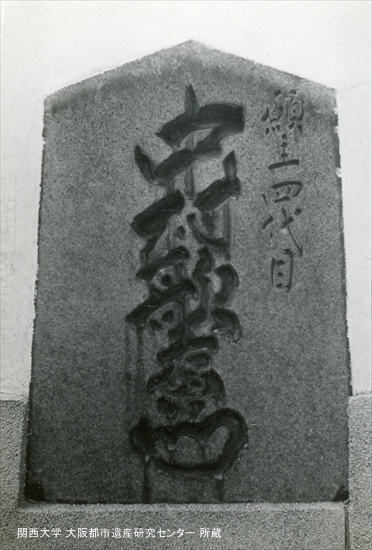 願主四代目
中村歌右衛門
関西大学 大阪都市遺産研究センター 所蔵